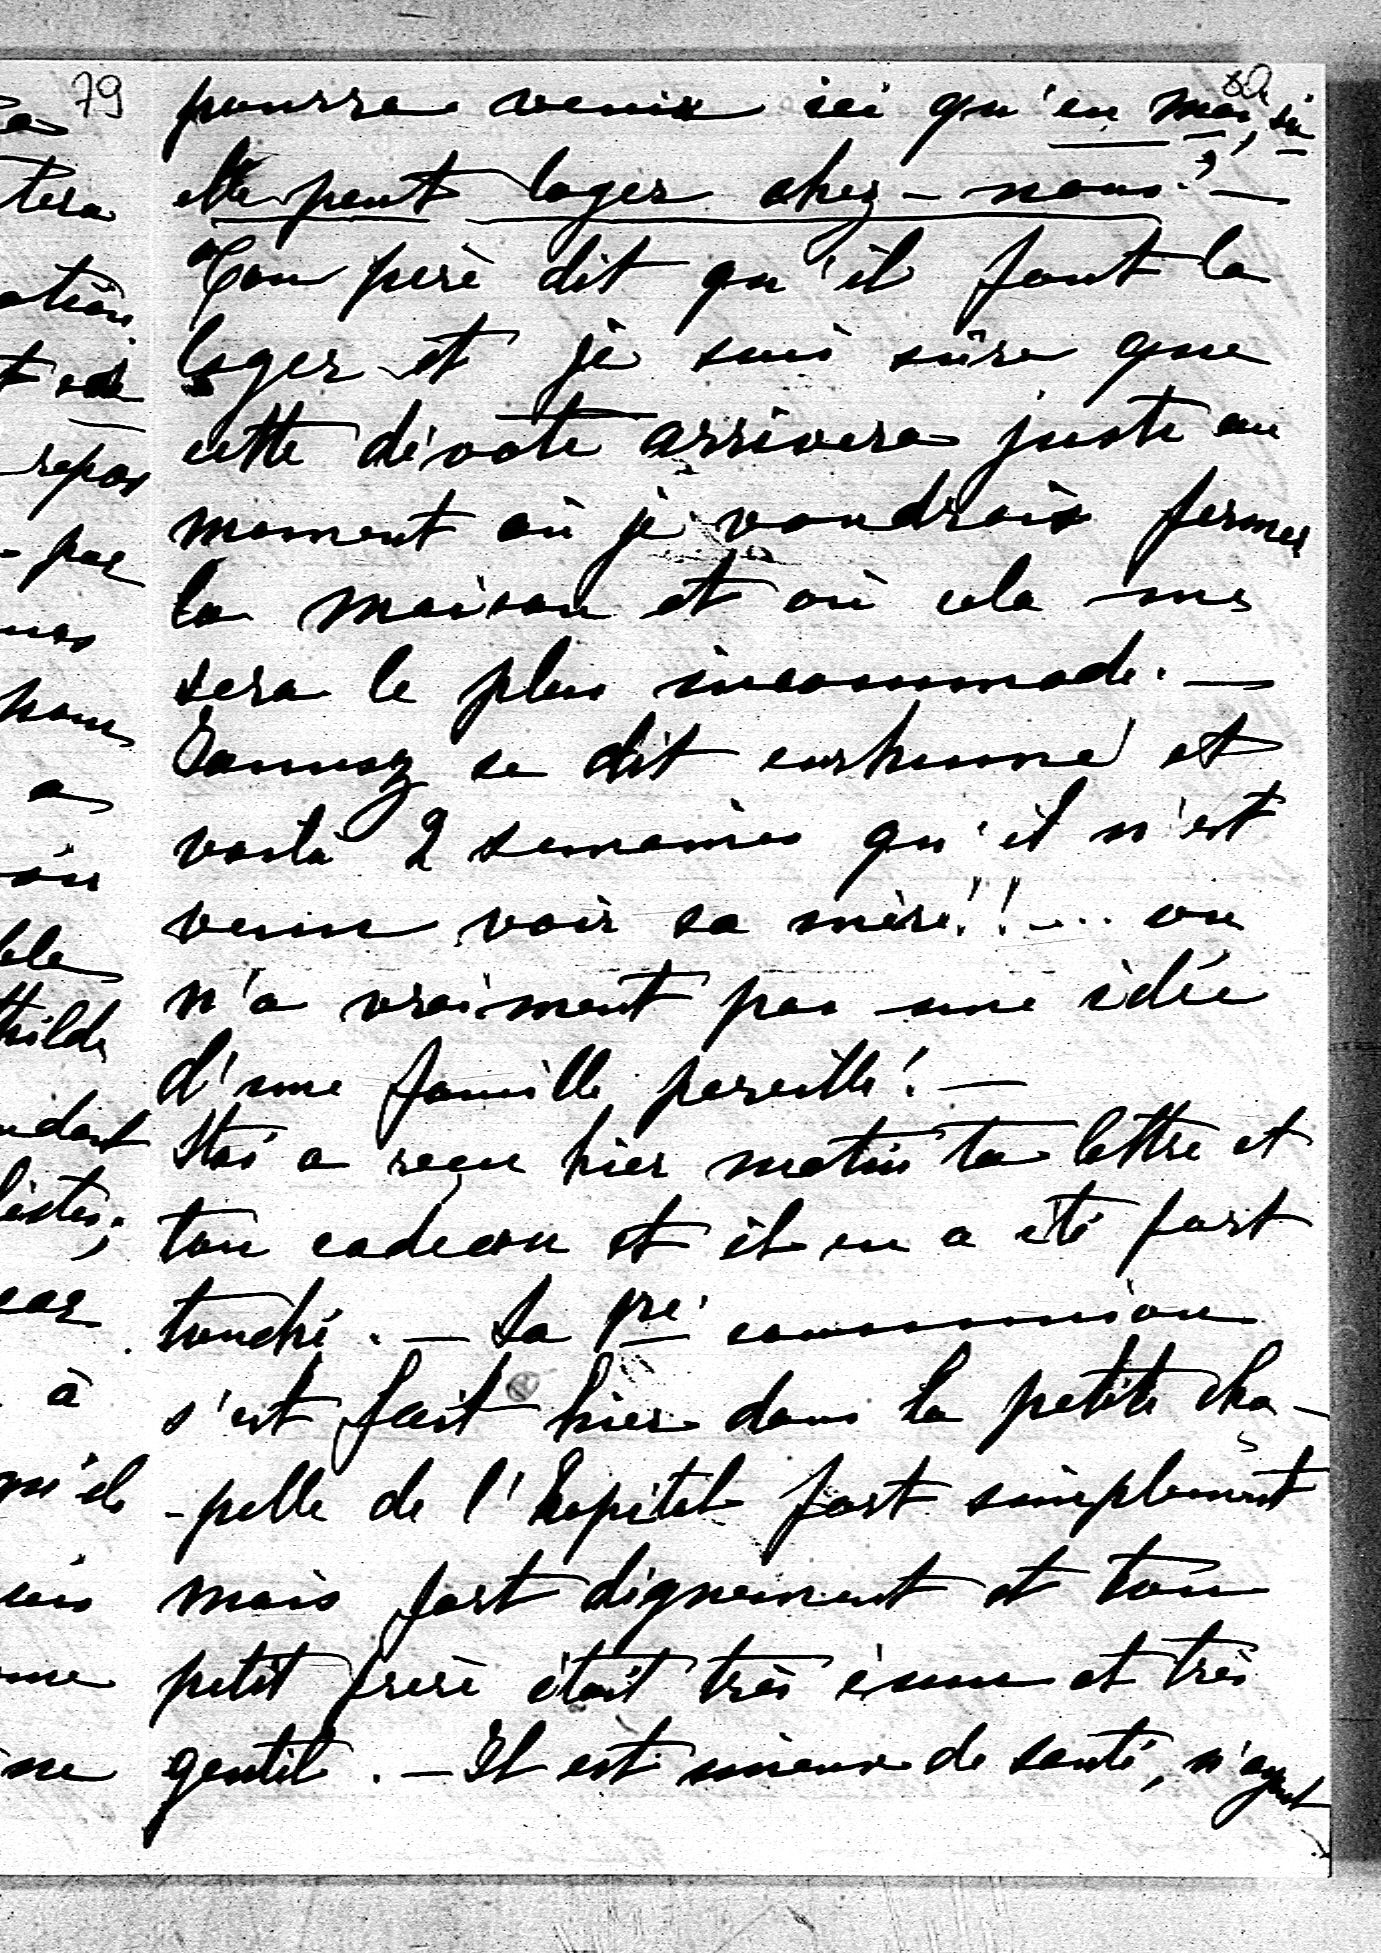 79
pourra venir ici qu'en mai, si
elle peut loger chez-nous? —
Ton perè dit qu'il faut la
loger et je suis sûre que
cette dévote arrivera juste au
moment où je voudrais fermer
la maison et où cela me
sera le plus incommode. —
se dit enrhumé et
voilà 2 semaines qu'il n'est
venu voir sa mère!! ... on
n'a vraiment pas une idée
d'une famille pareille! —
a reçu hier matin ta lettre et
ton cadeau et il en a été fort
touché. — Sa 1re communion
s'est fait hier dans la petite cha-
-pelle de l'hopital fort simplement
mais fort dignement et ton
petit frerè était très ému et très
gentil. — Il est mieux de santé, n'ayant